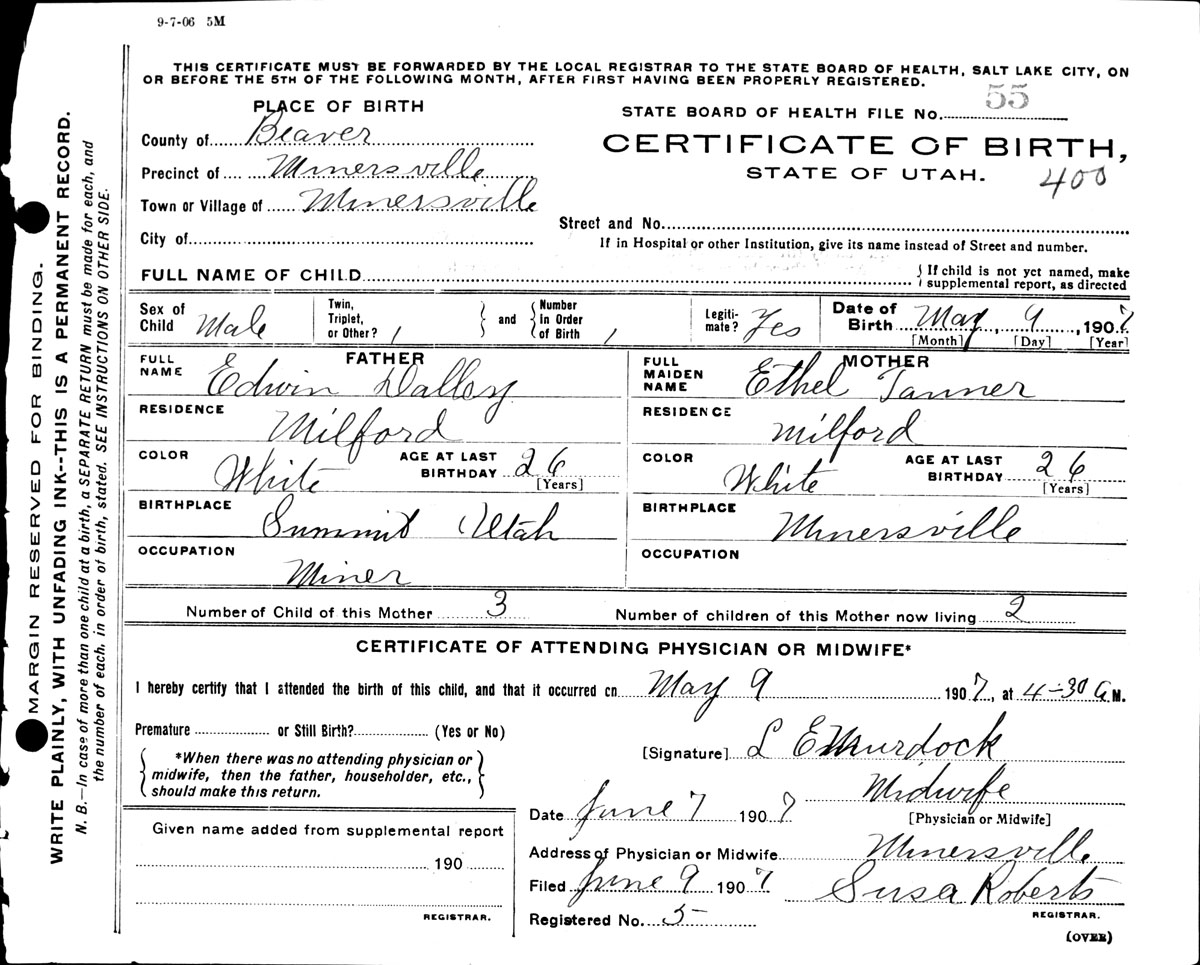 9-7-06 5M
THIS CERTIFICATE MUST BE FORWARDED BY THE LOCAL REGISTRAR TO THE STATE BOARD OF HEALTH, SALT LAKE CITY, ON
OR BEFORE THE 5TH OF THE FOLLOWING MONTH, AFTER FIRST HAVING BEEN PROPERLY REGISTERED.
PLACE OF BIRTH
County of Beaver
Precinct of Minersville
Town or Village of Minersville
City of
STATE BOARD OF HEALTH FILE No. 55
CERTIFICATE OF BIRTH,
STATE OF UTAH.
400
Street and No.
If in Hospital or other Institution, give its name instead of Street and number.
FULL NAME OF CHILD
{ If child is not yet named, make
supplemental report, as directed
Sex of Child Male
Twin, Triplet, or Other? 1
and
Number in Order of Birth 1
Legiti-mate? Yes
Date of Birth May, 9, 1907
[Month] [Day] [Year]
FATHER
FULL NAME Edwin Dalley
RESIDENCE Milford
COLOR White
AGE AT LAST BIRTHDAY 26
[Years]
BIRTHPLACE Summit Utah
OCCUPATION Miner
MOTHER
FULL MAIDEN NAME Ethel Tanner
RESIDENCE Milford
COLOR White
AGE AT LAST BIRTHDAY 26
[Years]
BIRTHPLACE Minersville
OCCUPATION
Number of Child of this Mother 3 Number of children of this Mother now living 2
CERTIFICATE OF ATTENDING PHYSICIAN OR MIDWIFE*
I hereby certify that I attended the birth of this child, and that it occurred on May 9 1907, at 4-30 A.M.
Premature or Still Birth? (Yes or No)
*When there was no attending physician or
midwife, then the father, householder, etc.,
should make this return.
[Signature] L E Murdock
Midwife
[Physician or Midwife]
Date June 7 1907
Address of Physician or Midwife Minersville
Filed June 9 1907 Susa Roberts
REGISTRAR.
Registered No. 5
(OVER)
Given name added from supplemental report
190
REGISTRAR.
MARGIN RESERVED FOR BINDING.
WRITE PLAINLY, WITH UNFADING INK--THIS IS A PERMANENT RECORD.
N. B.—In case of more than one child at a birth, a SEPARATE RETURN must be made for each, and
the number of each, in order of birth, stated. SEE INSTRUCTIONS ON OTHER SIDE.